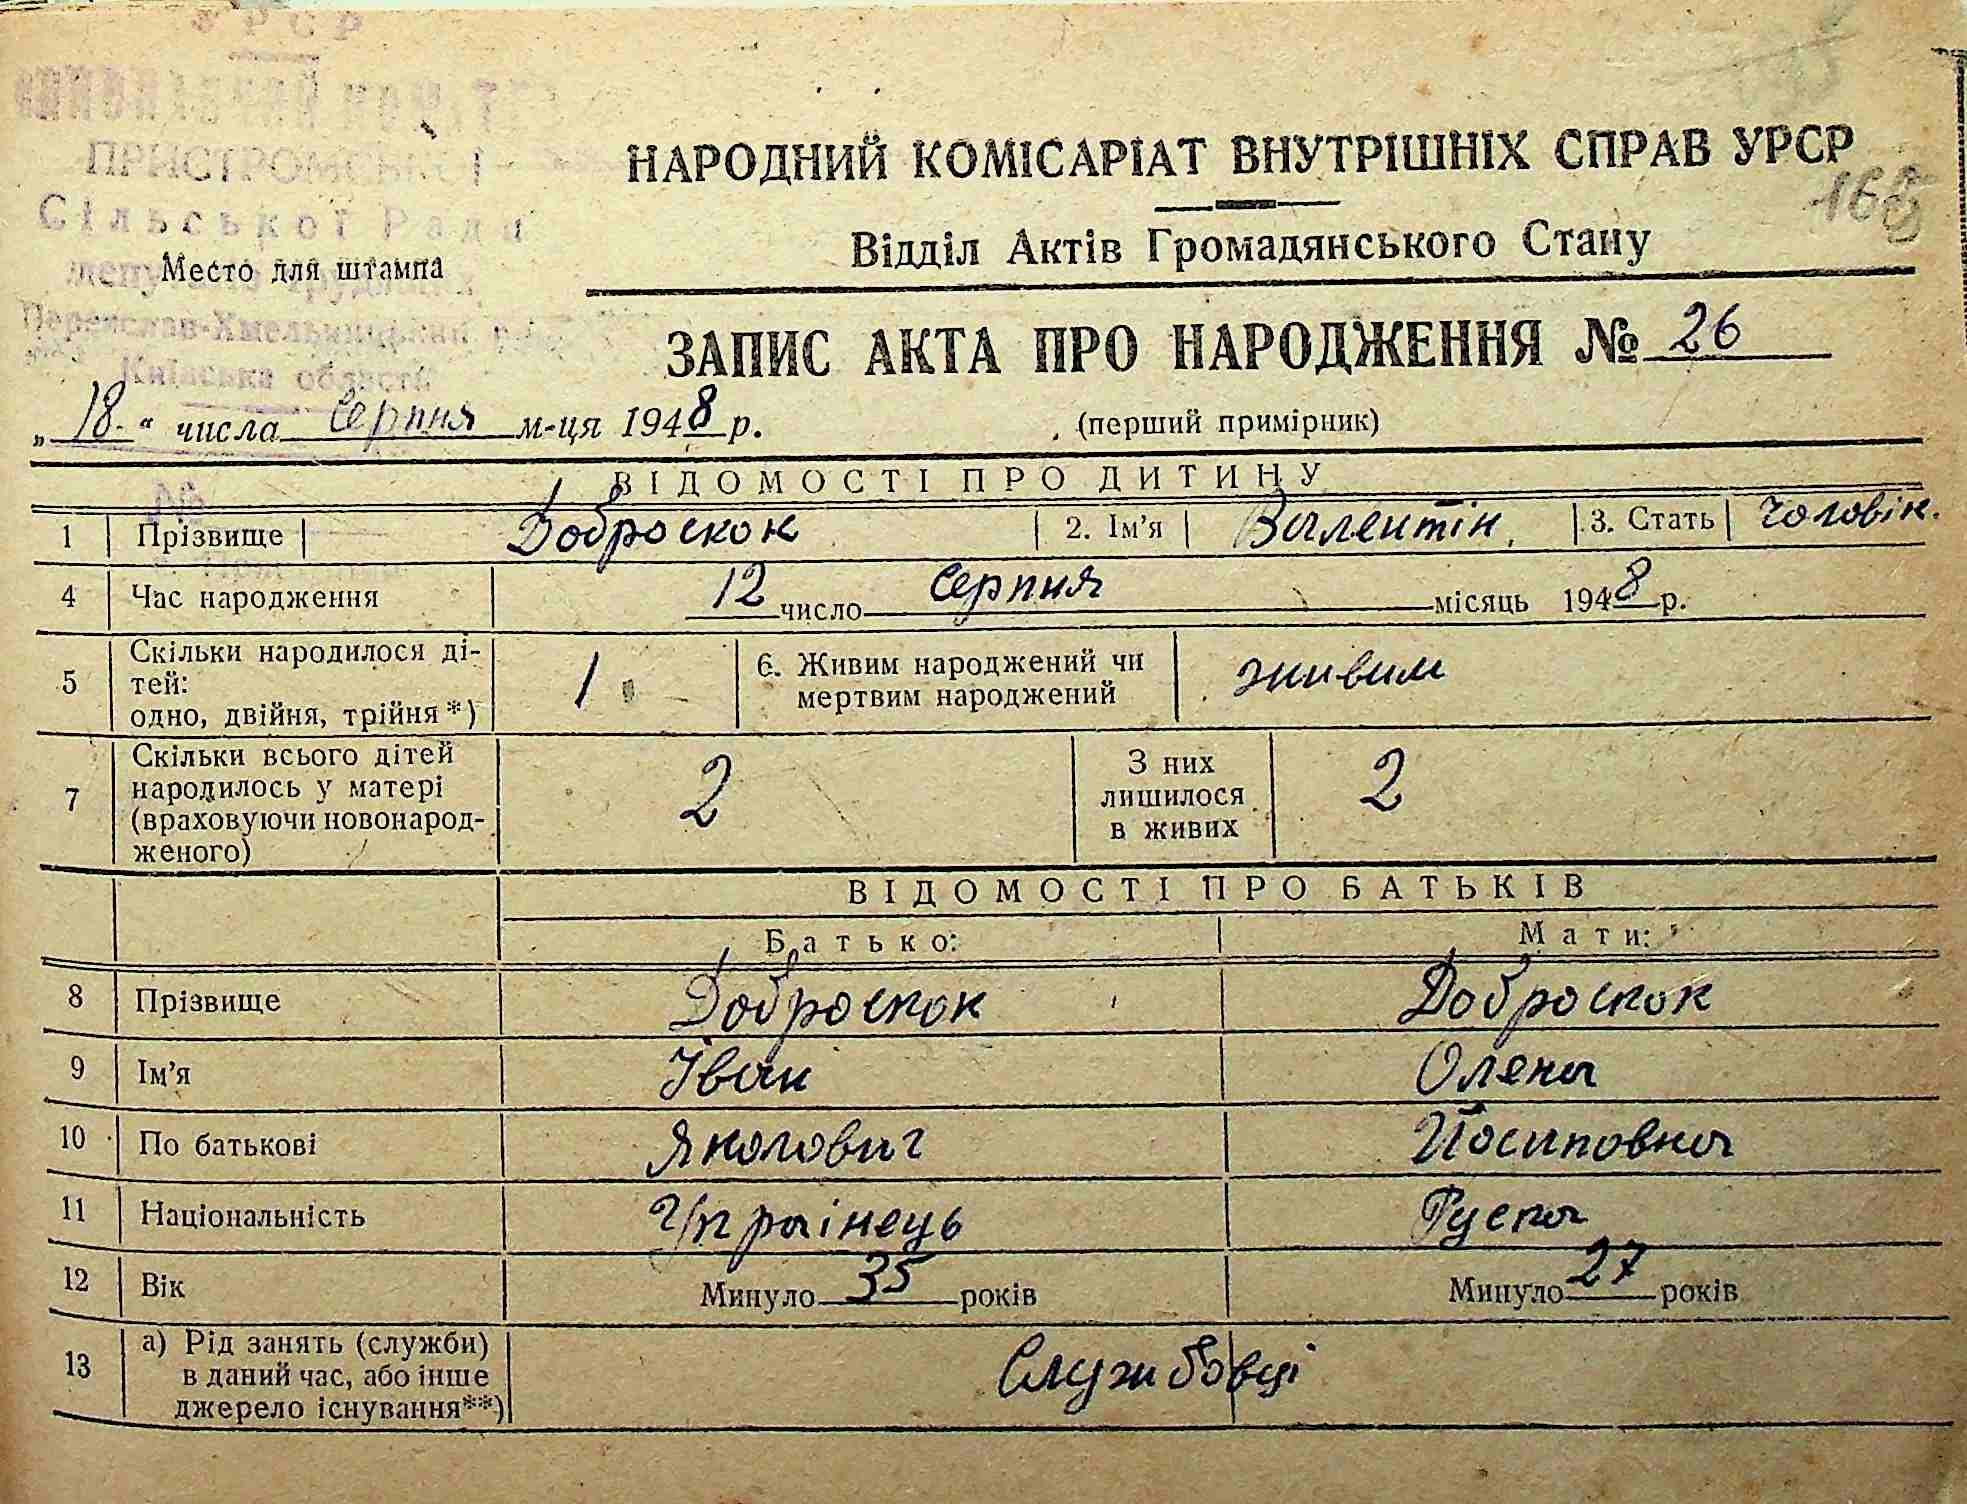 УРСР
ПРИСТРОМСЬКОЇ
Сільської Ради
Место для штампа
Переяслав-Хмельницький
Київська області
НАРОДНИЙ КОМІСАРІАТ ВНУТРІШНІХ СПРАВ УРСР
165
Відділ Актів Громадянського Стану
ЗАПИС АКТА ПРО НАРОДЖЕННЯ № 26
„18“ числа Серпня м-ця 1948 р. (перший примірник)
ВІДОМОСТІ ПРО ДИТИНУ
1 Прізвище Доброскок 2. Ім’я Валентін. 3. Стать Чоловік.
4 Час народження 12 число Серпня місяць 1948 р.
5 Скільки народилося ді-
тей:
одно, двійня, трійня*) 1
6. Живим народжений чи
мертвим народжений живим
7 Скільки всього дітей
народилось у матері
(враховуючи новонарод-
женого) 2
З них
лишилося
в живих 2
ВІДОМОСТІ ПРО БАТЬКІВ
Батько: Мати:
8 Прізвище Доброскок Доброскок
9 Ім’я Іван Олена
10 По батькові Якович Йосиповна
11 Національність Українець Руска
12 Вік Минуло 35 років Минуло 27 років
13 а) Рід занять (служби)
в даний час, або інше
джерело існування**) Службовці